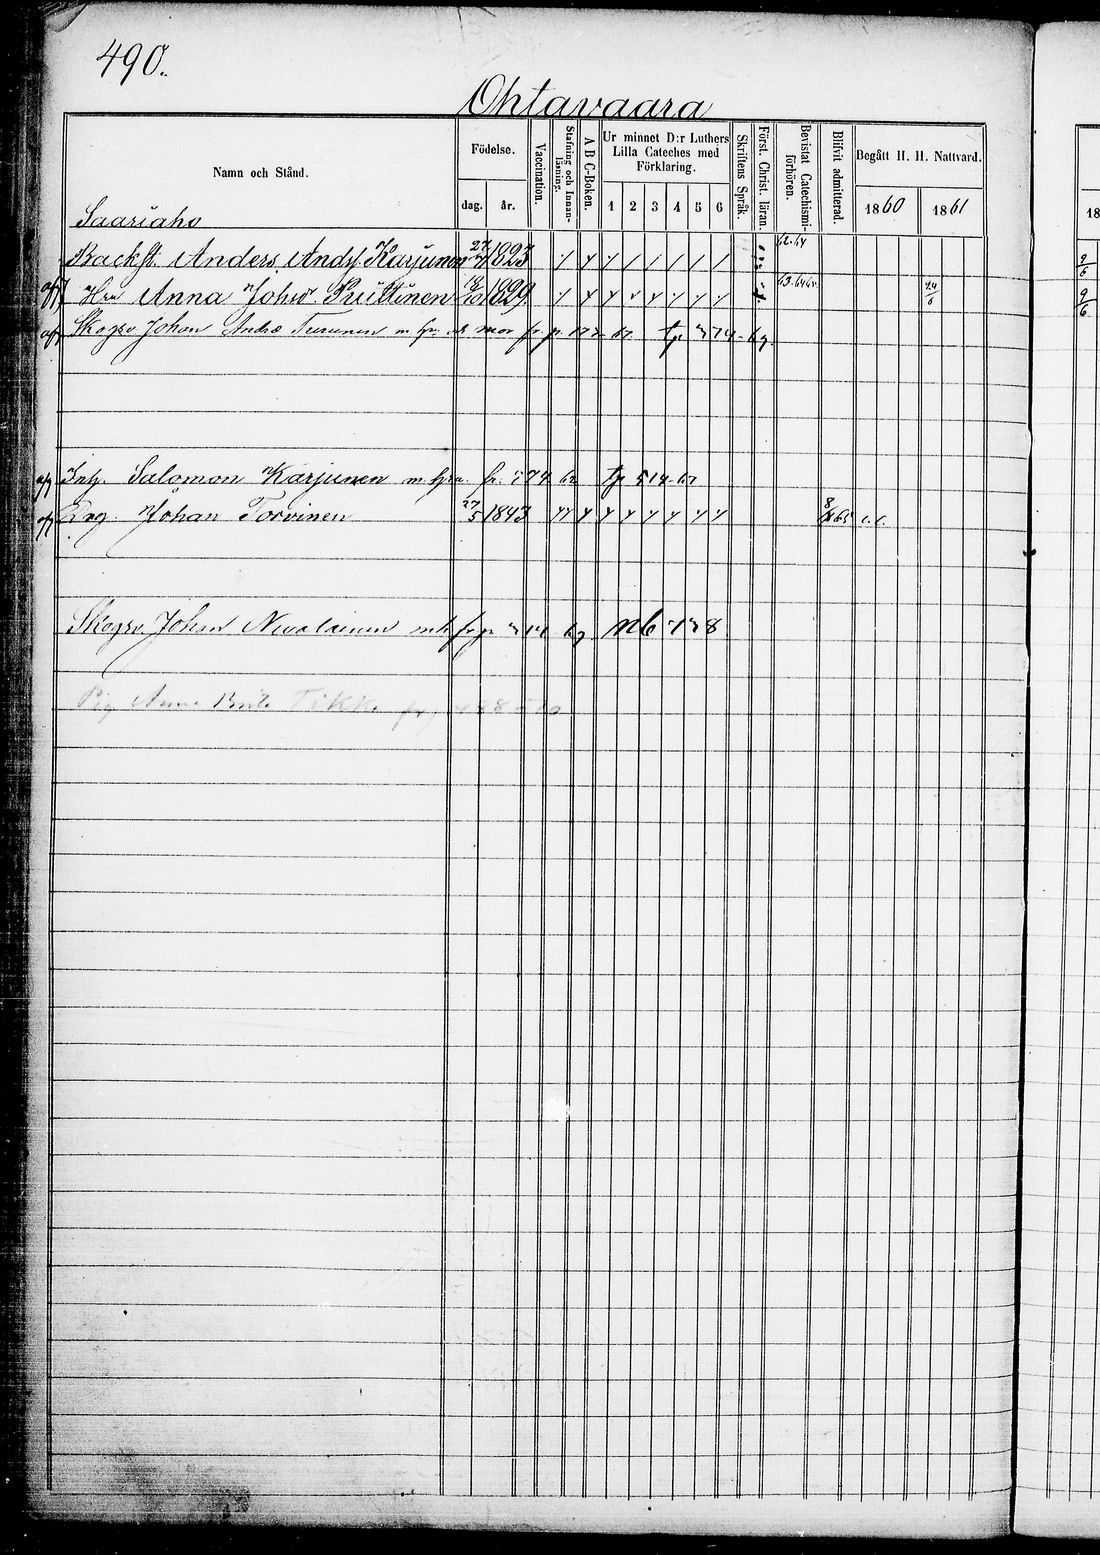 490.
Ohtavaara
Namn och Stånd.
Födelse.
dag. år.
Vaccination.
Stafning och Innanläsning.
A B C-Boken.
Ur minnet D:r Luthers Lilla Cateches med Förklaring.
1 2 3 4 5 6
Skriftens Språk.
Först. Christ. läran.
Bevistat Catechismiförhören.
Blifvit admitterad.
Begått H. H. Nattvard.
1860 1861
Saariaho
Backst. Anders Andsf. Karjunen 27/7 1823 62.64
Hru Anna Johsdr Puittinen 1829 24/6
Skogsv Johan Turunen m hru
Inh. Salomon Karjunen m hru fr. 574 62 tp 514-67
Drg. Johan Torvinen 27/5 1843
Skogsv. Johan Nevalainen
Pig Anna Brita Tikka